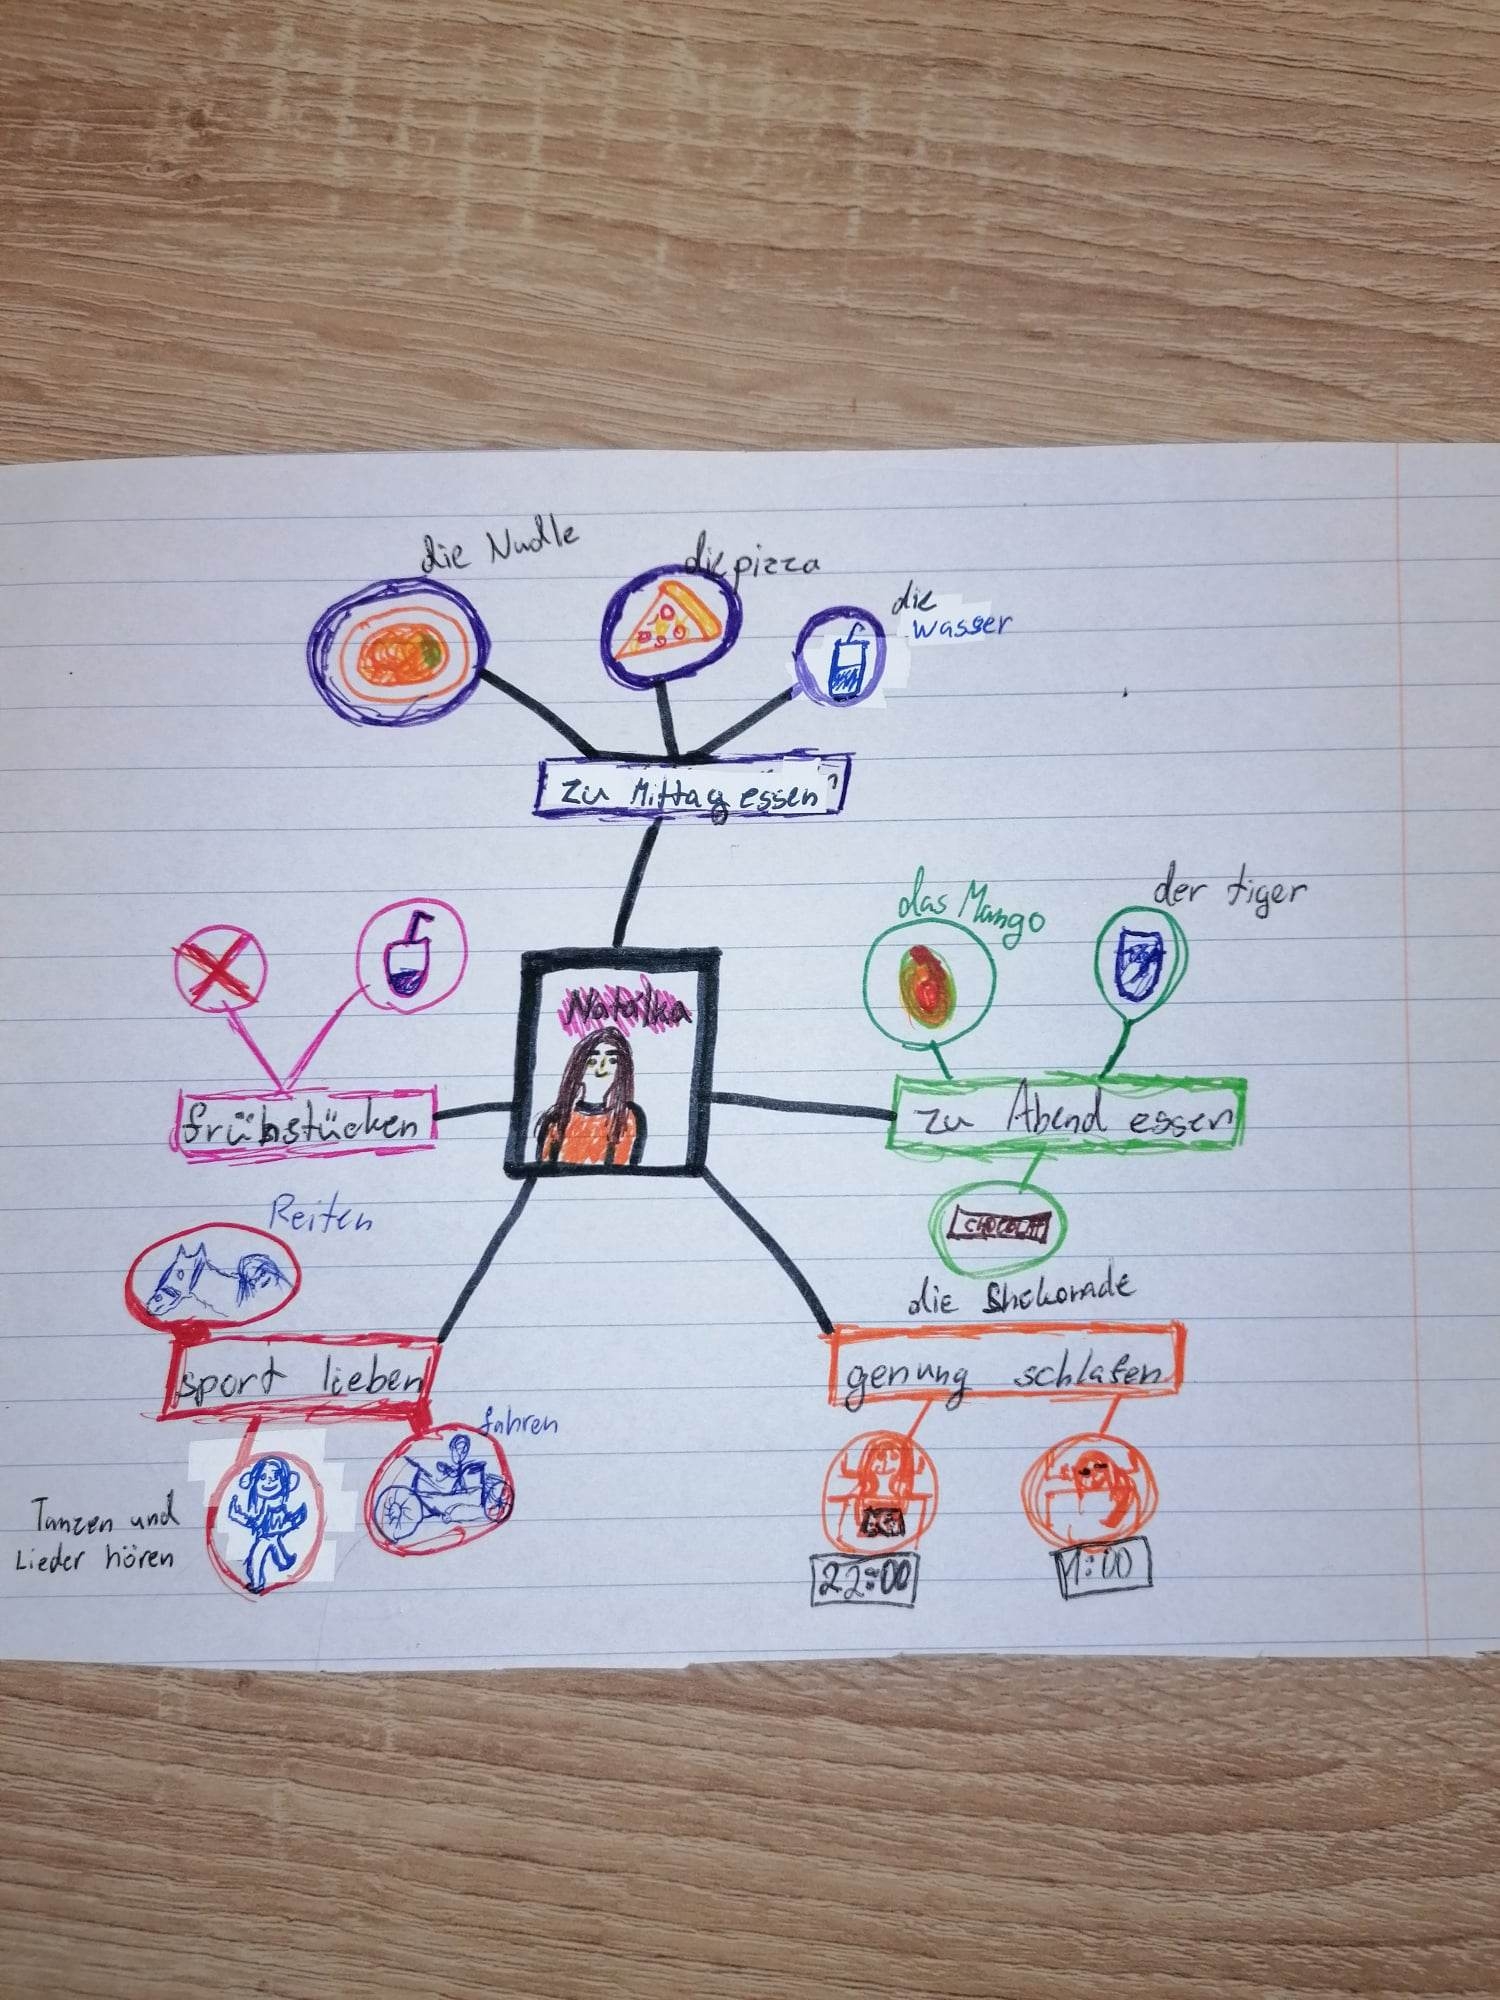 die Nudle
die pizza
die
wasser
zu Mittag essen
das Mango
der tiger
Natalka
frühstücken
zu Abend essen
Reiten
CHOCOLAT
die Shokorade
sport lieben
genung schlafen
fahren
Tanzen und
Lieder hören
22:00
1:00